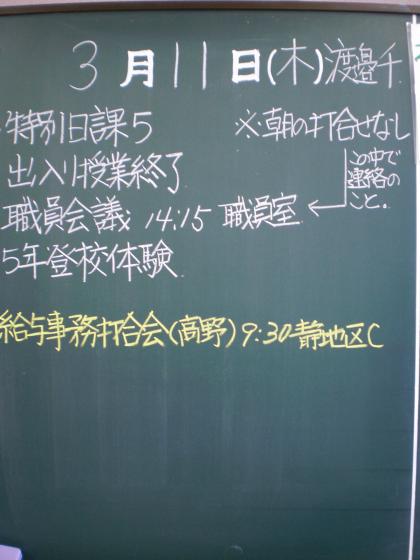 3月11日(木)渡邉千
特別日課5 ※朝の打合せなし
出入り授業終了
職員会議 14:15 職員室 ←この中で
連絡の
こと。
5年登校体験
給与事務打合会(高野) 9:30 静地区C